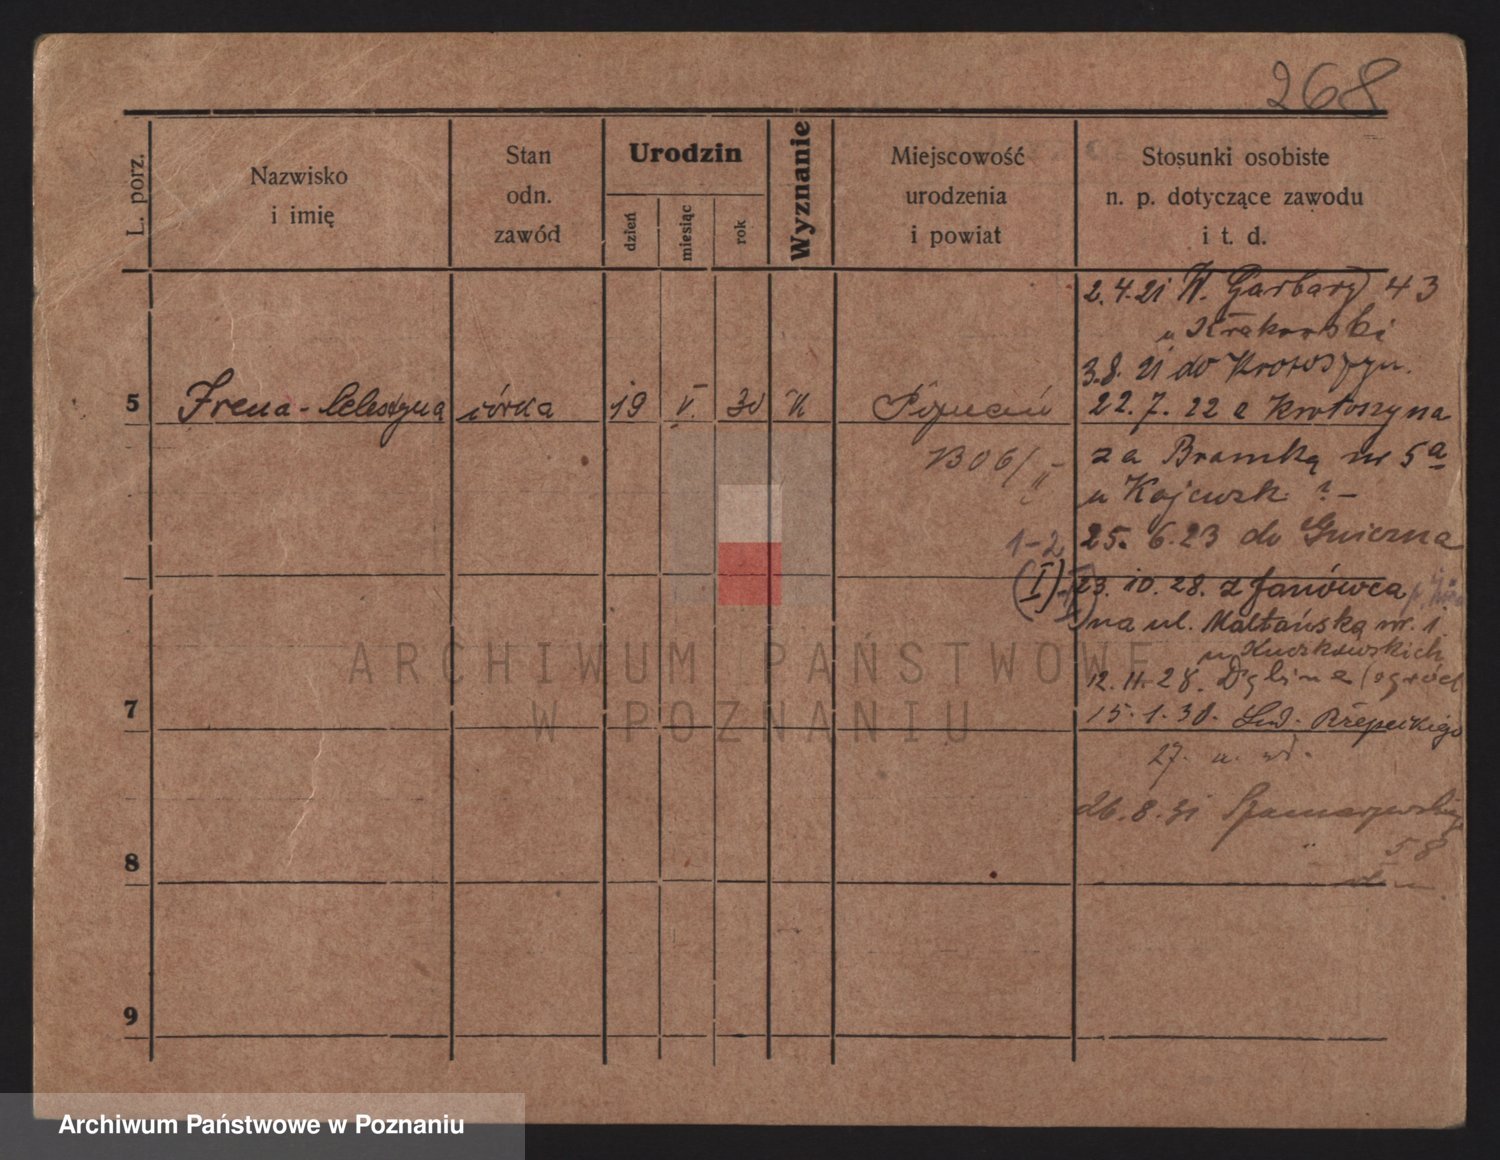 268
L. porz.
Nazwisko
i imię
Stan
odn.
zawód
Urodzin
dzień
miesiąc
rok
Wyznanie
Miejscowość
urodzenia
i powiat
Stosunki osobiste
n. p. dotyczące zawodu
i t. d.
2.4.21 W. Garbary 43
u Krakowski
3.8.21 do Krotoszyn.
5 Irena - Celestyna córka 19 V. 30 K Poznań
22.7.22 z Krotoszyna
B 06/II
za Bramką nr 5a
u Kajewsk ? -
1-2
25. 6.23 do Gniezna
(I)
23. 10. 28. z Janówca
na ul. Maltańską nr. 1.
12. 11. 28. Dębina (ogród
7
15. 1. 30. Lud. Rzepeckiego
27.
26. 8. 31
58
8
9
ARCHIWUM PAŃSTWOWE
W POZNANIU
Archiwum Państwowe w Poznaniu